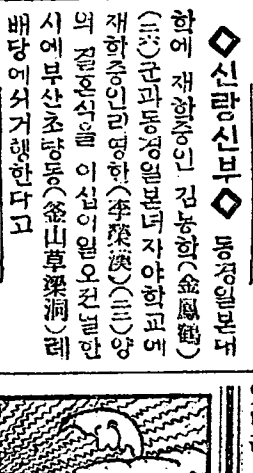 ◇신랑신부◇ 동경일본대
학에 재학중인 김농학(金鳳鶴)
(二六)군과동경일본녀자야학교에
재학중인리영한(李榮漢)(二三)양
의 결혼식을 이십이일오전널한
시에부산초량동(釜山草梁洞)례
배당에서거행한다고